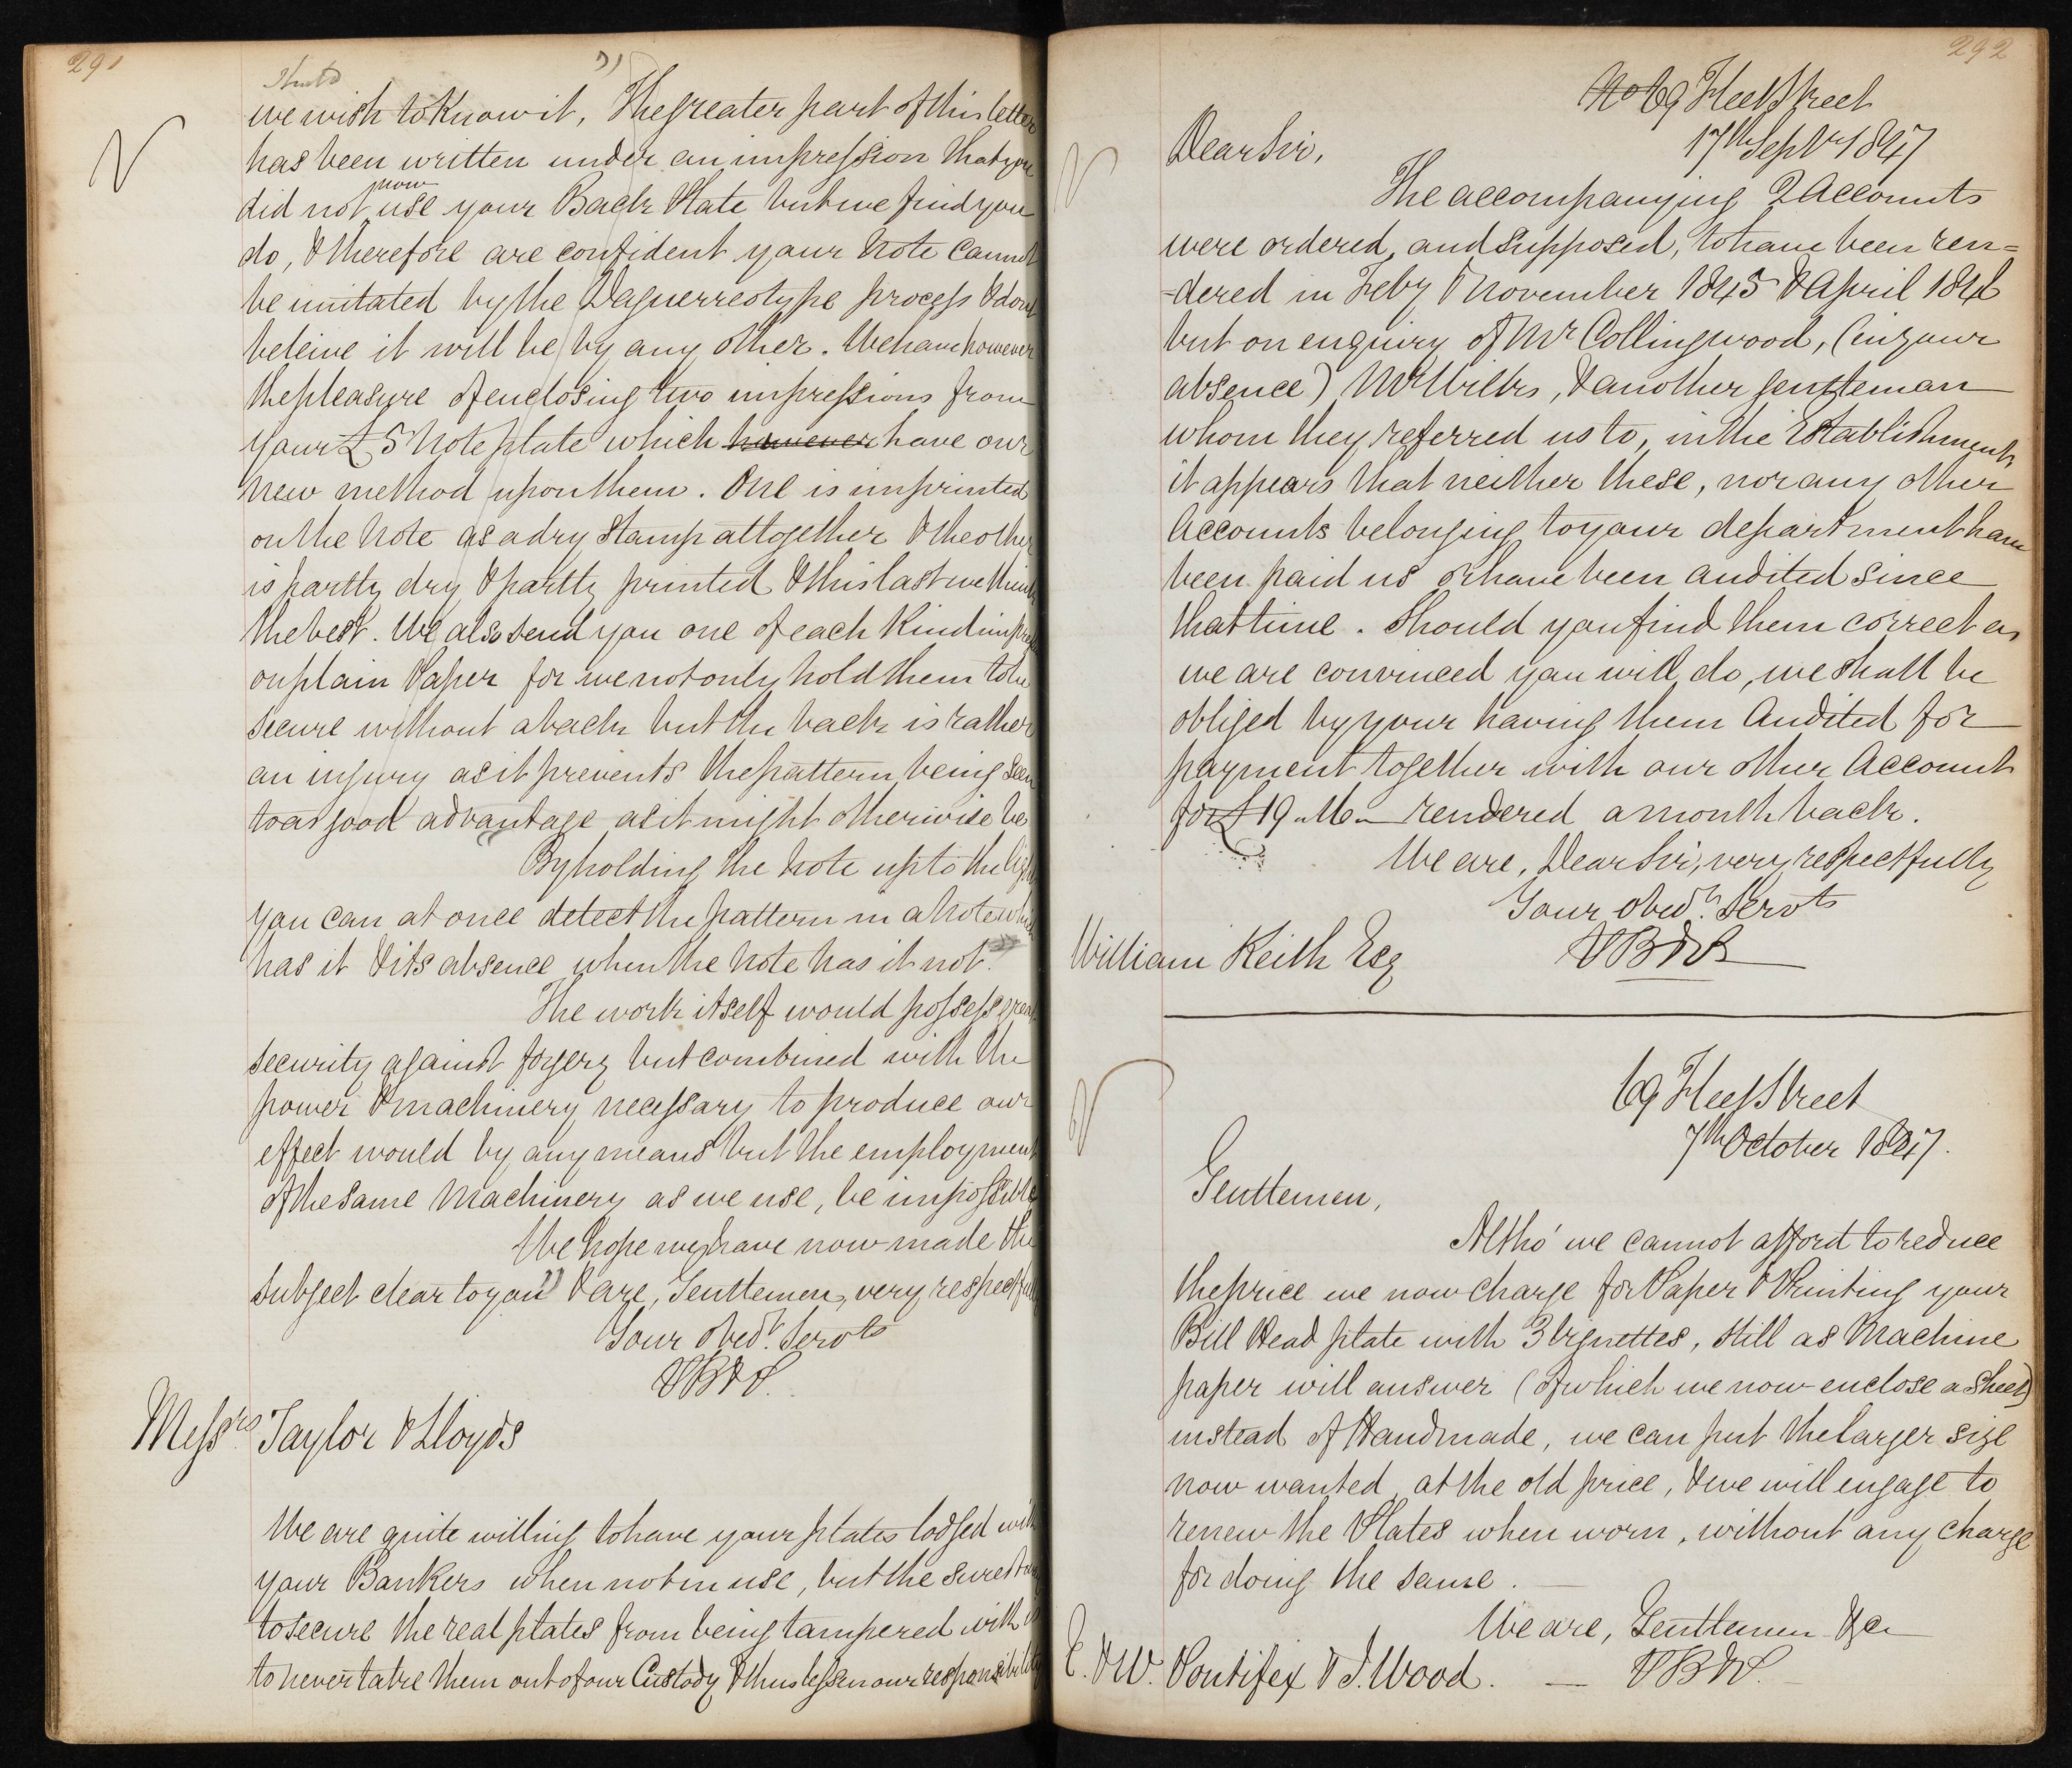 291
we wish to Know it, The greater part of this letter
has been written under an impression that you
now
did not use your Back Plate but we find you
do, & therefore are confident your Note cannot
be imitated by the Daguerreotype process & dont
beleive it will be by any other. We have however
the pleasure of enclosing two impressions from
your £5 Note plate which however have our
new method upon them. One is imprinted
on the Note as a dry Stamp altogether & the other
is partly dry & partly printed & this last we think
the best. We also send you one of each Kind impress
on plain Paper for we not only hold them to be
secure without a back but the back is rather
an injury as it prevents the pattern being seen
to as good advantage as it might otherwise be
By holding the Note up to the light
you can at once detect the pattern in a Note which
has it & its absence when the Note has it not.
The work itself would possess great
security against forgery but combined with the
power & machinery necessary to produce our
effect would by any means but the employment
of the same Machinery as we use, be impossible
We hope we have now made the
subject clear to you & are, Gentlemen, very respectfully
Your obed.t Servts
PB&P.
Messrs. Taylor & Lloyds
We are quite willing to have your plates lodged with
your Bankers when not in use, but the surest way
to secure the real plates from being tampered with is
to never take them out of our Custody & thus lessen our responsibility
292
No 69 Fleet Street
17th Septr 1847
Dear Sir,
The accompanying 2 Accounts
were ordered, and supposed, to have been ren=
=dered in Feby & November 1845 & April 1846
but on enquiry of Mr Collingwood, (in your
absence) Mr Wilks, & another gentleman
whom they referred us to, in the Establishment,
it appears that neither these, nor any other
Accounts belonging to your department have
been paid us or have been audited since
that time. Should you find them correct as
we are convinced you will do, we shall be
obliged by your having them Audited for
payment together with our other Account
for £19.16.- rendered a month back.
We are, Dear Sir, very respectfully
Your obedt. Servts
PB&P
William Keith Esq
69 Fleet Street
7th October 1847.
Gentlemen,
Altho' we cannot afford to reduce
the price we now charge for Paper & Printing your
Bill Head plate with 3 Vignettes, still as Machine
paper will answer (of which we now enclose a sheet)
instead of Handmade, we can put the larger size
now wanted, at the old price, & we will engage to
renew the Plates when worn, without any charge
for doing the same.
We are, Gentlemen &c
E. & W. Pontifex & J. Wood. — PB&P.